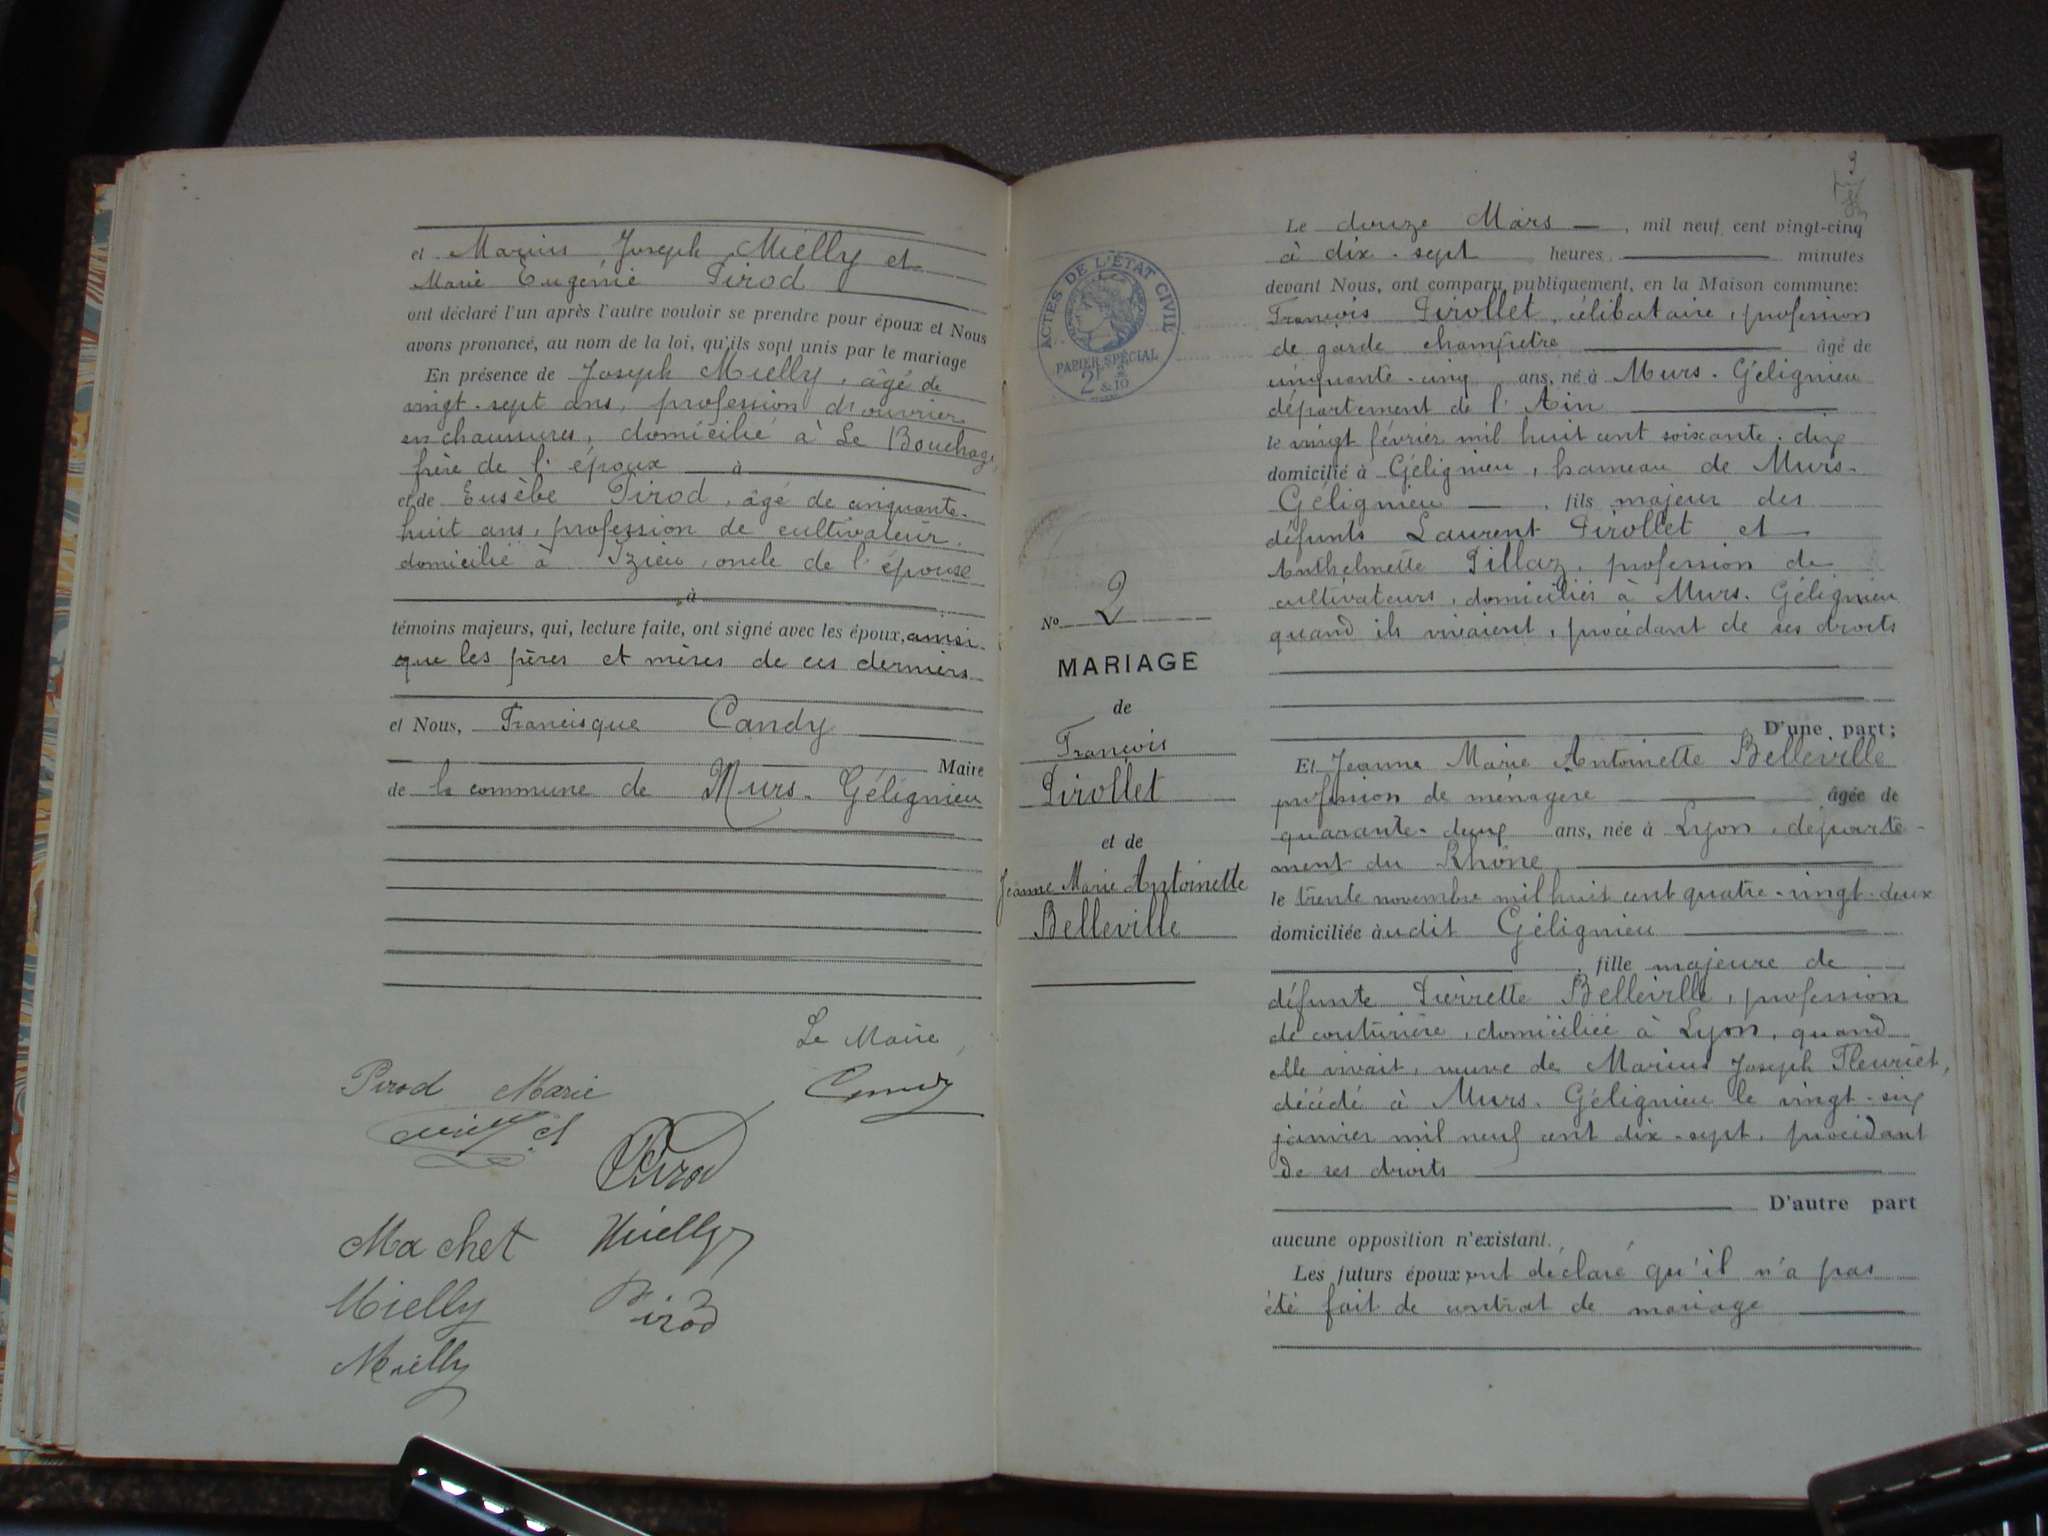 et Marius Joseph Mielly et
Marie Eugénie Pirod
ont déclaré l'un après l'autre vouloir se prendre pour époux et Nous
avons prononcé, au nom de la loi, qu'ils sont unis par le mariage
En présence de Joseph Mielly, âgé de
vingt-sept ans, profession d'ouvrier
en chaussures, domicilié à Le Bouchage,
frère de l'époux à
et de Eusèbe Pirod, âgé de cinquante-
huit ans, profession de cultivateur,
domicilié à Izieu, oncle de l'épouse
à
témoins majeurs, qui, lecture faite, ont signé avec les époux, ainsi
que les pères et mères de ces derniers
et Nous, Francisque Candy
Maire
de la commune de Murs-Gélignieu
Le Maire,
Pirod Marie
Candy
Mielly
Pirod
Machet Mielly
Mielly Pirod
Mielly
ACTES DE L'ÉTAT CIVIL
PAPIER SPÉCIAL
2F
& 10
No 2
MARIAGE
de
François
Pirollet
et de
Jeanne Marie Antoinette
Belleville
3
Le douze Mars —, mil neuf cent vingt-cinq
à dix-sept heures minutes
devant Nous, ont comparu publiquement, en la Maison commune:
François Pirollet, célibataire, profession
de garde champêtre âgé de
cinquante-cinq ans, né à Murs-Gélignieu
département de l'Ain
le vingt février mil huit cent soixante-dix
domicilié à Gélignieu, hameau de Murs-
Gélignieu —, fils majeur des
défunts Laurent Pirollet et
Anthelmette Pillaz, profession de
cultivateurs, domiciliés à Murs-Gélignieu
quand ils vivaient, procédant de ses droits
D'une part;
Et Jeanne Marie Antoinette Belleville
profession de ménagère âgée de
quarante-deux ans, née à Lyon, départe-
ment du Rhône
le trente novembre mil huit cent quatre-vingt-deux
domiciliée audit Gélignieu
, fille majeure de
défunte Pierrette Belleville, profession
de couturière, domiciliée à Lyon, quand
elle vivait, veuve de Marius Joseph Fleuriet,
décédé à Murs-Gélignieu le vingt-six
janvier mil neuf cent dix-sept, procédant
de ses droits
D'autre part
aucune opposition n'existant.
Les futurs époux ont déclaré qu'il n'a pas
été fait de contrat de mariage